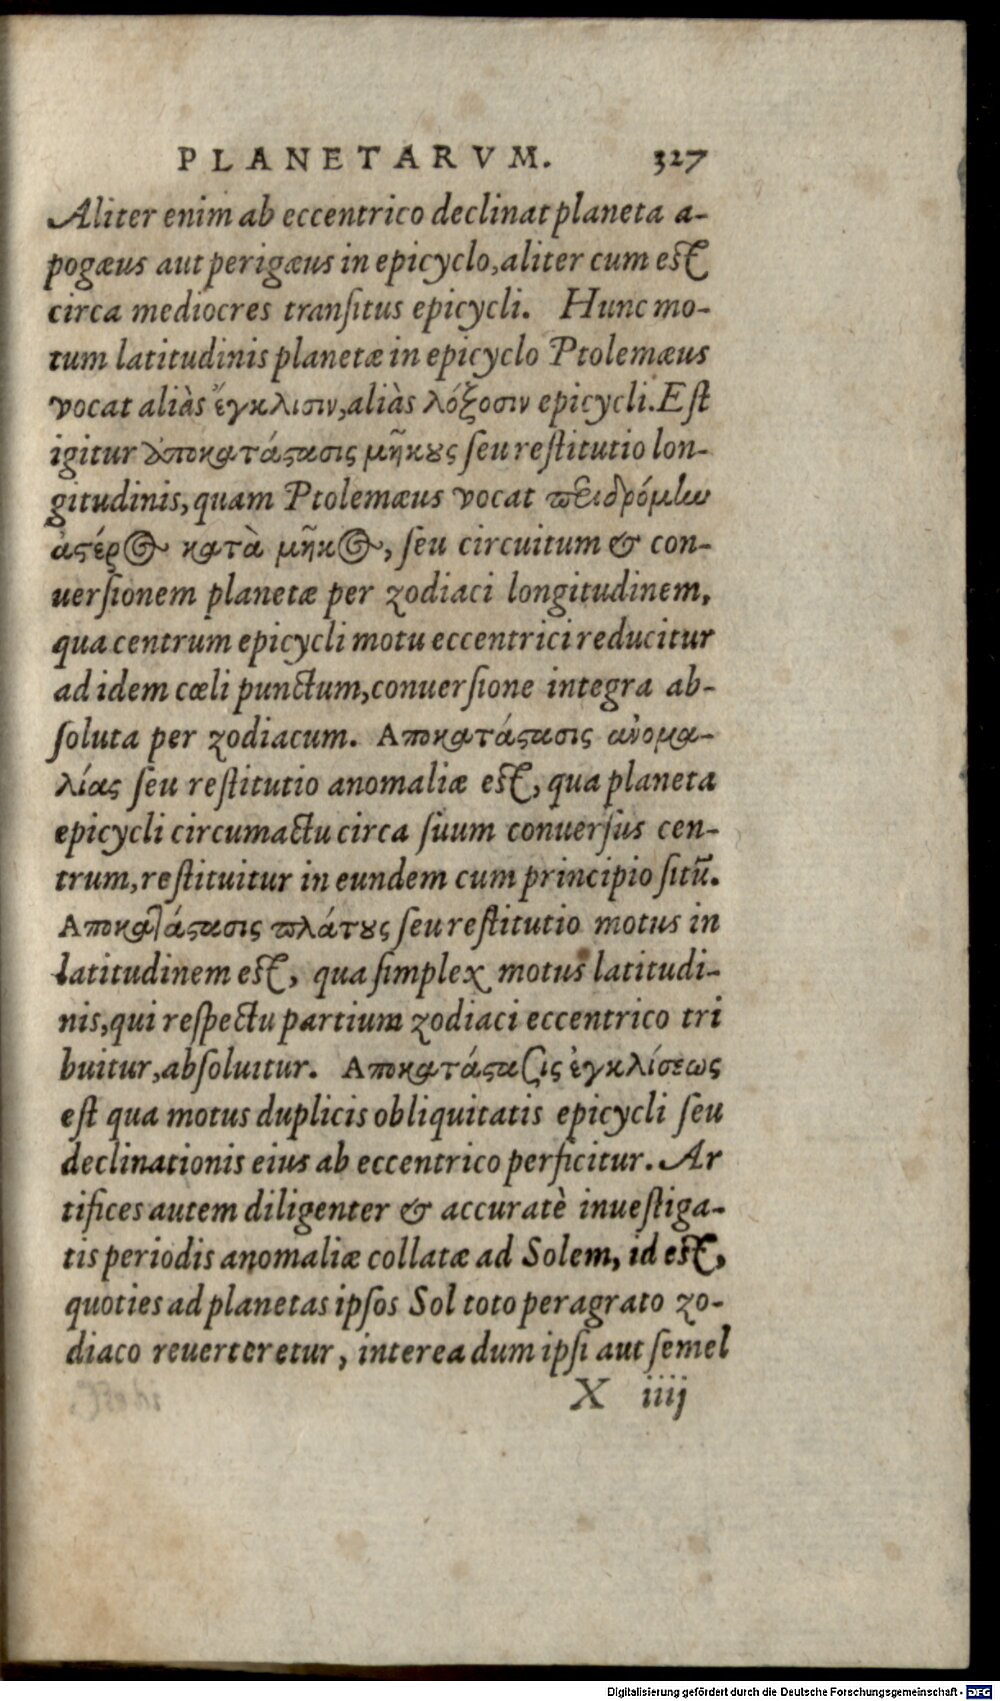 PLANETARVM. 327
Aliter enim ab eccentrico declinat planeta a-
pogæus aut perigæus in epicyclo, aliter cum est
circa mediocres tranſitus epicycli. Hunc mo-
tum latitudinis planetæ in epicyclo Ptolemæus
vocat aliàs ἔγκλισιν, aliàs λόξοσιν epicycli. Eſt
igitur ἀποκατάϛασις μῆκȣς ſeu reſtitutio lon-
gitudinis, quam Ptolemæus vocat περιδρόμην
ἀϛέρος κατὰ μῆκος, ſeu circuitum & con-
uerſionem planetæ per zodiaci longitudinem,
qua centrum epicycli motu eccentrici reducitur
ad idem cœli punctum, conuerſione integra ab-
ſoluta per zodiacum. Αποκατάϛασις ἀνομα-
λίας ſeu reſtitutio anomaliæ est, qua planeta
epicycli circumactu circa ſuum conuerſus cen-
trum, reſtituitur in eundem cum principio ſitū.
Αποκατάϛασις πλάτȣς ſeu reſtitutio motus in
latitudinem est, qua ſimplex motus latitudi-
nis, qui reſpectu partium zodiaci eccentrico tri
buitur, abſoluitur. Αποκατάϛασις ἐγκλίσεως
eſt qua motus duplicis obliquitatis epicycli ſeu
declinationis eius ab eccentrico perficitur. Ar
tifices autem diligenter & accuratè inueſtiga-
tis periodis anomaliæ collatæ ad Solem, id est,
quoties ad planetas ipſos Sol toto peragrato zo-
diaco reuerteretur, interea dum ipſi aut ſemel
X iiij
Digitalisierung gefördert durch die Deutsche Forschungsgemeinschaft - DFG